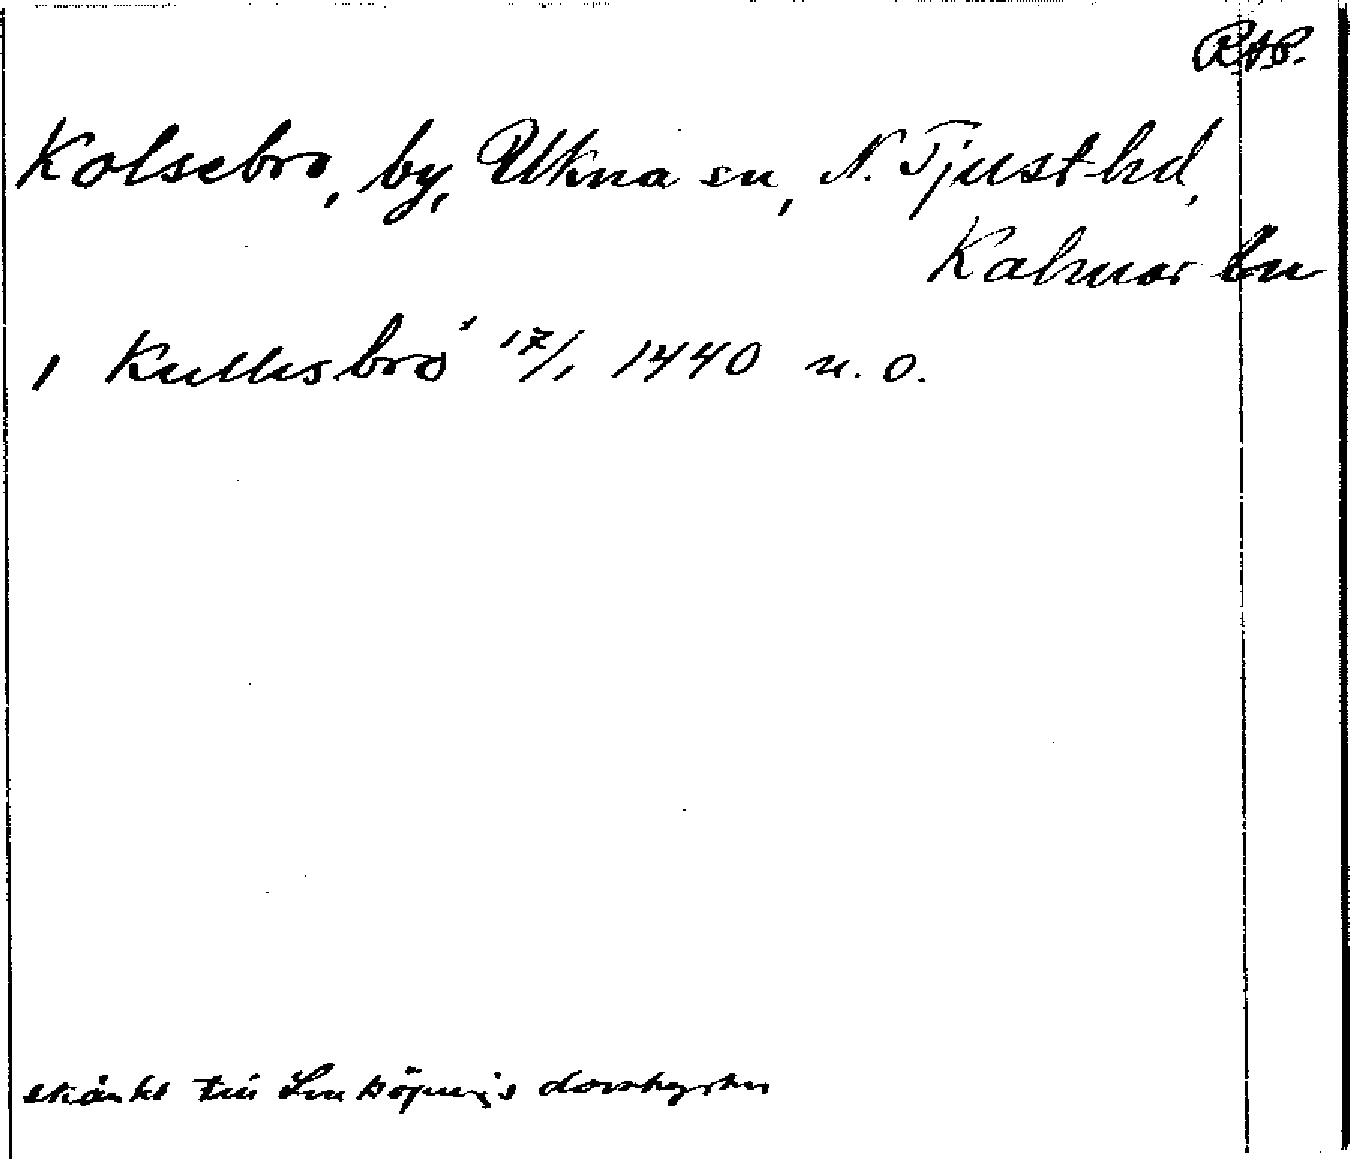 RAP.
Kolsebro, by, Ukna sn, N. Tjust hd,
Kalmar län
i Kullesbro 17/1 1440 n. o.
skänkt till Linköpings domkyrka